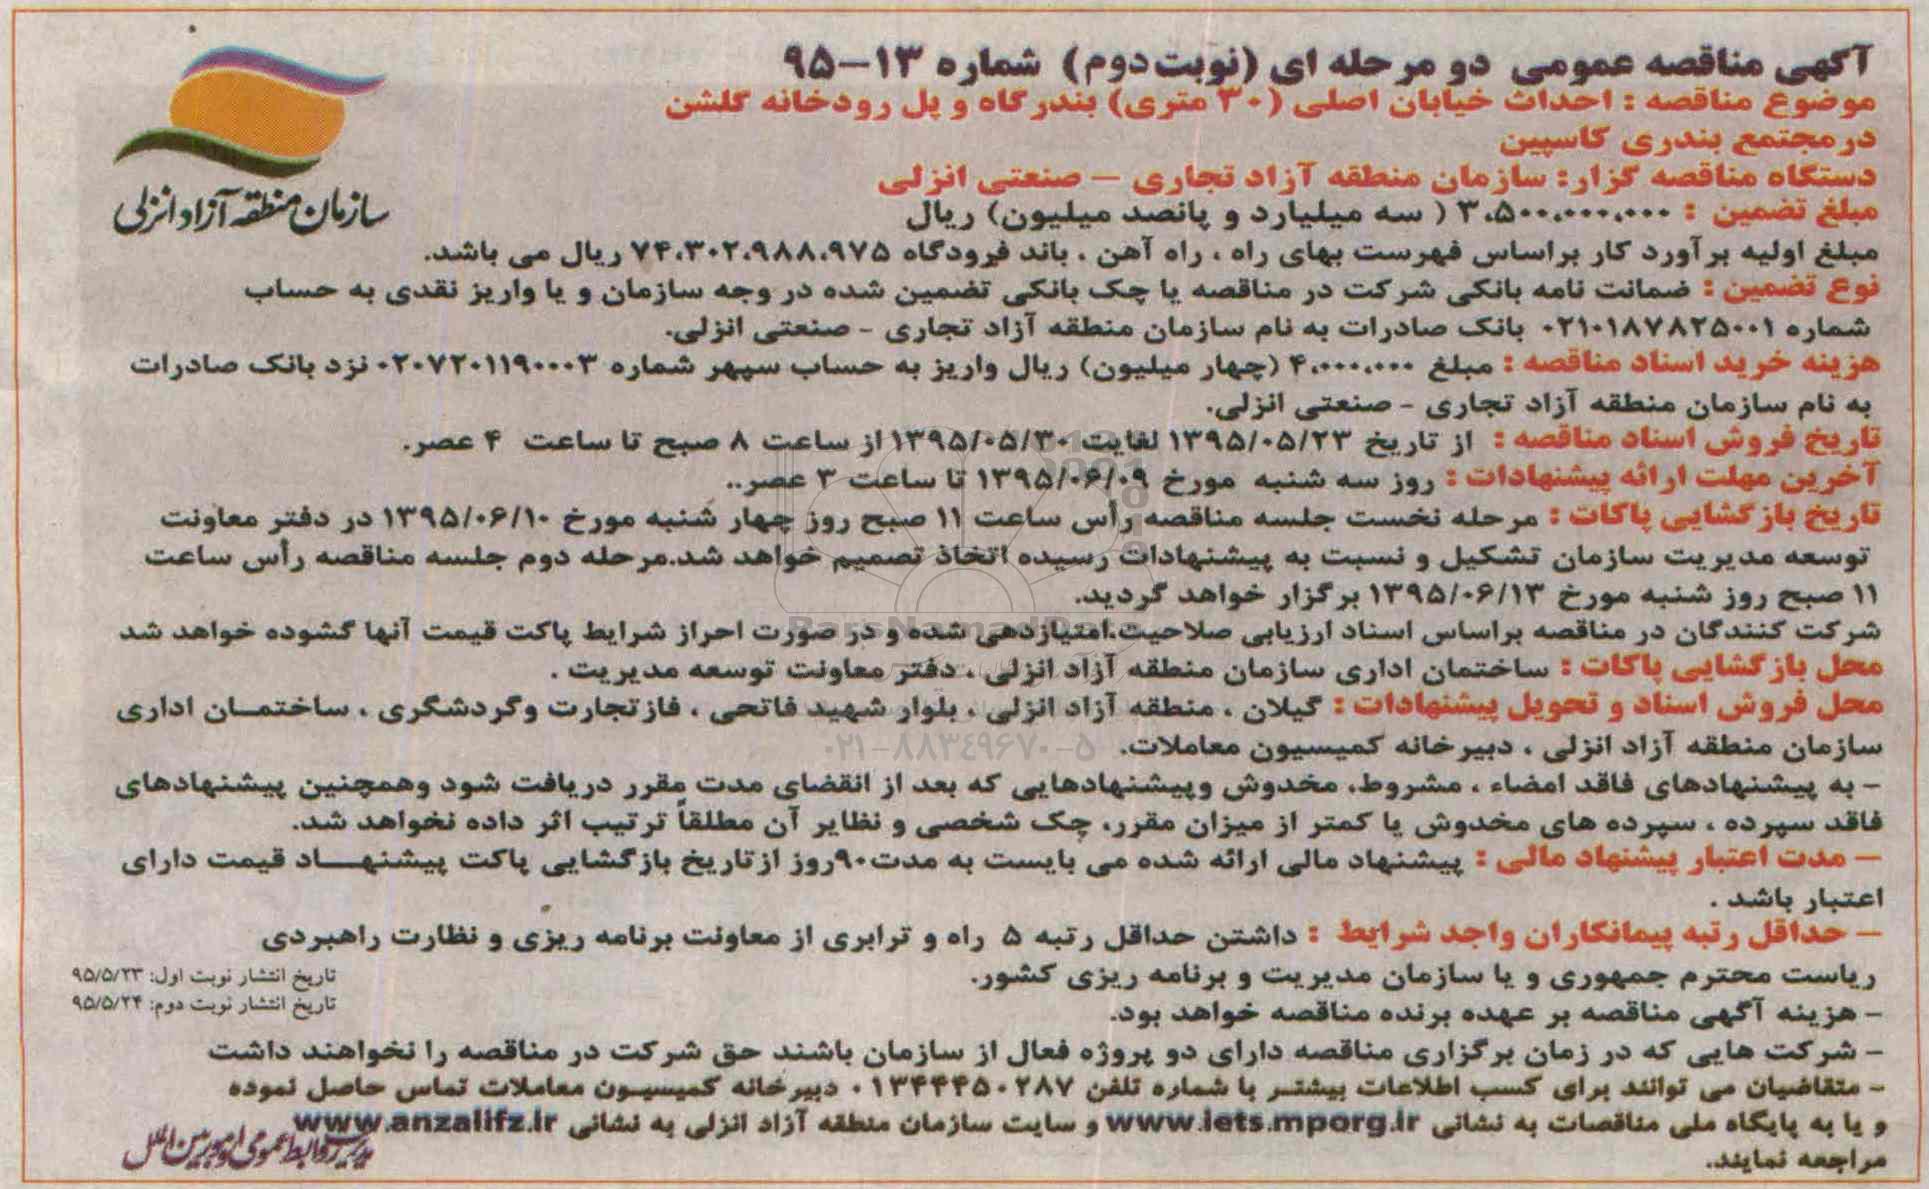 آگهی مناقصه عمومی دو مرحله ای (نوبت دوم) شماره ۱۳–۹۵
موضوع مناقصه : احداث خیابان اصلی (۳۰ متری) بندرگاه و پل رودخانه گلشن
در مجتمع بندری کاسپین
دستگاه مناقصه گزار: سازمان منطقه آزاد تجاری – صنعتی انزلی
سازمان منطقه آزاد انزلی
مبلغ تضمین : ۳،۵۰۰،۰۰۰،۰۰۰ ( سه میلیارد و پانصد میلیون) ریال
مبلغ اولیه برآورد کار براساس فهرست بهای راه ، راه آهن ، باند فرودگاه ۷۴،۳۰۲،۹۸۸،۹۷۵ ریال می باشد.
نوع تضمین : ضمانت نامه بانکی شرکت در مناقصه یا چک بانکی تضمین شده در وجه سازمان و یا واریز نقدی به حساب
شماره ۰۲۱۰۱۸۷۸۲۵۰۰۱ بانک صادرات به نام سازمان منطقه آزاد تجاری - صنعتی انزلی.
هزینه خرید اسناد مناقصه : مبلغ ۴،۰۰۰،۰۰۰ (چهار میلیون) ریال واریز به حساب سپهر شماره ۰۲۰۷۲۰۱۱۹۰۰۰۳ نزد بانک صادرات
به نام سازمان منطقه آزاد تجاری - صنعتی انزلی.
تاریخ فروش اسناد مناقصه : از تاریخ ۱۳۹۵/۰۵/۲۳ لغایت ۱۳۹۵/۰۵/۳۰ از ساعت ۸ صبح تا ساعت ۴ عصر.
آخرین مهلت ارائه پیشنهادات : روز سه شنبه مورخ ۱۳۹۵/۰۶/۰۹ تا ساعت ۳ عصر..
تاریخ بازگشایی پاکات : مرحله نخست جلسه مناقصه رأس ساعت ۱۱ صبح روز چهار شنبه مورخ ۱۳۹۵/۰۶/۱۰ در دفتر معاونت
توسعه مدیریت سازمان تشکیل و نسبت به پیشنهادات رسیده اتخاذ تصمیم خواهد شد.مرحله دوم جلسه مناقصه رأس ساعت
۱۱ صبح روز شنبه مورخ ۱۳۹۵/۰۶/۱۳ برگزار خواهد گردید.
شرکت کنندگان در مناقصه براساس اسناد ارزیابی صلاحیت،امتیازدهی شده و در صورت احراز شرایط پاکت قیمت آنها گشوده خواهد شد
محل بازگشایی پاکات : ساختمان اداری سازمان منطقه آزاد انزلی ، دفتر معاونت توسعه مدیریت .
محل فروش اسناد و تحویل پیشنهادات : گیلان ، منطقه آزاد انزلی ، بلوار شهید فاتحی ، فاز تجارت وگردشگری ، ساختمان اداری
سازمان منطقه آزاد انزلی ، دبیرخانه کمیسیون معاملات.
۰۲۱-۸۸۳۴۹۶۷۰-۵
- به پیشنهادهای فاقد امضاء ، مشروط، مخدوش وپیشنهادهایی که بعد از انقضای مدت مقرر دریافت شود وهمچنین پیشنهادهای
فاقد سپرده ، سپرده های مخدوش یا کمتر از میزان مقرر، چک شخصی و نظایر آن مطلقاً ترتیب اثر داده نخواهد شد.
– مدت اعتبار پیشنهاد مالی : پیشنهاد مالی ارائه شده می بایست به مدت۹۰روز ازتاریخ بازگشایی پاکت پیشنهاد قیمت دارای
اعتبار باشد .
– حداقل رتبه پیمانکاران واجد شرایط : داشتن حداقل رتبه ۵ راه و ترابری از معاونت برنامه ریزی و نظارت راهبردی
ریاست محترم جمهوری و یا سازمان مدیریت و برنامه ریزی کشور.
تاریخ انتشار نوبت اول: ۹۵/۵/۲۳
تاریخ انتشار نوبت دوم: ۹۵/۵/۲۴
- هزینه آگهی مناقصه بر عهده برنده مناقصه خواهد بود.
- شرکت هایی که در زمان برگزاری مناقصه دارای دو پروژه فعال از سازمان باشند حق شرکت در مناقصه را نخواهند داشت
- متقاضیان می توانند برای کسب اطلاعات بیشتر با شماره تلفن ۰۱۳۴۴۴۵۰۲۸۷ دبیرخانه کمیسیون معاملات تماس حاصل نموده
و یا به پایگاه ملی مناقصات به نشانی www.iets.mporg.ir و سایت سازمان منطقه آزاد انزلی به نشانی www.anzalifz.ir
مراجعه نمایند.
مدیریت روابط عمومی و امور بین الملل